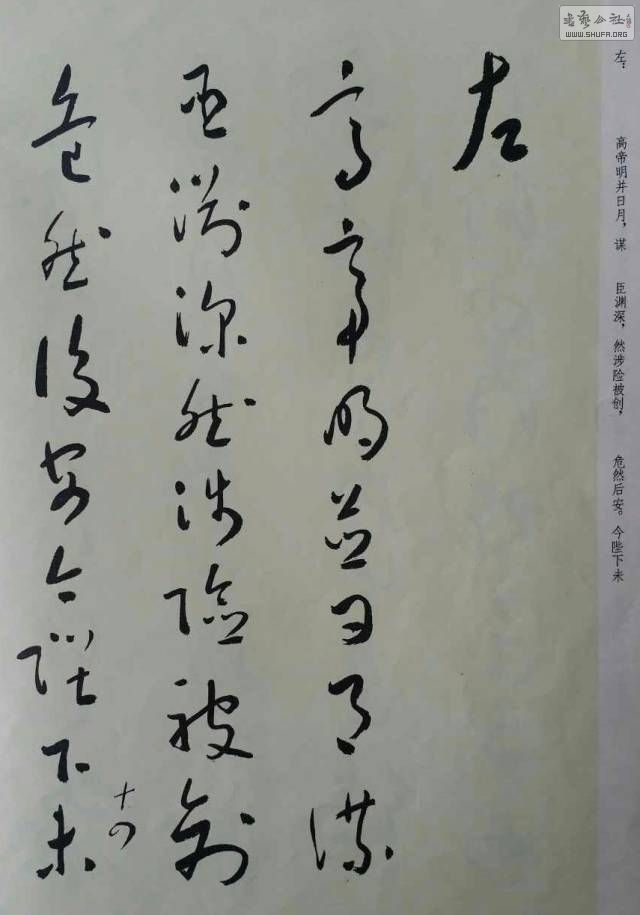 左
高帝明並日月謀
臣淵深然涉險被創
危然後安今陛下未
十四
左：
高帝明并日月，谋
臣渊深，然涉险被创，
危然后安。今陛下未
书艺公社
WWW.SHUFA.ORG